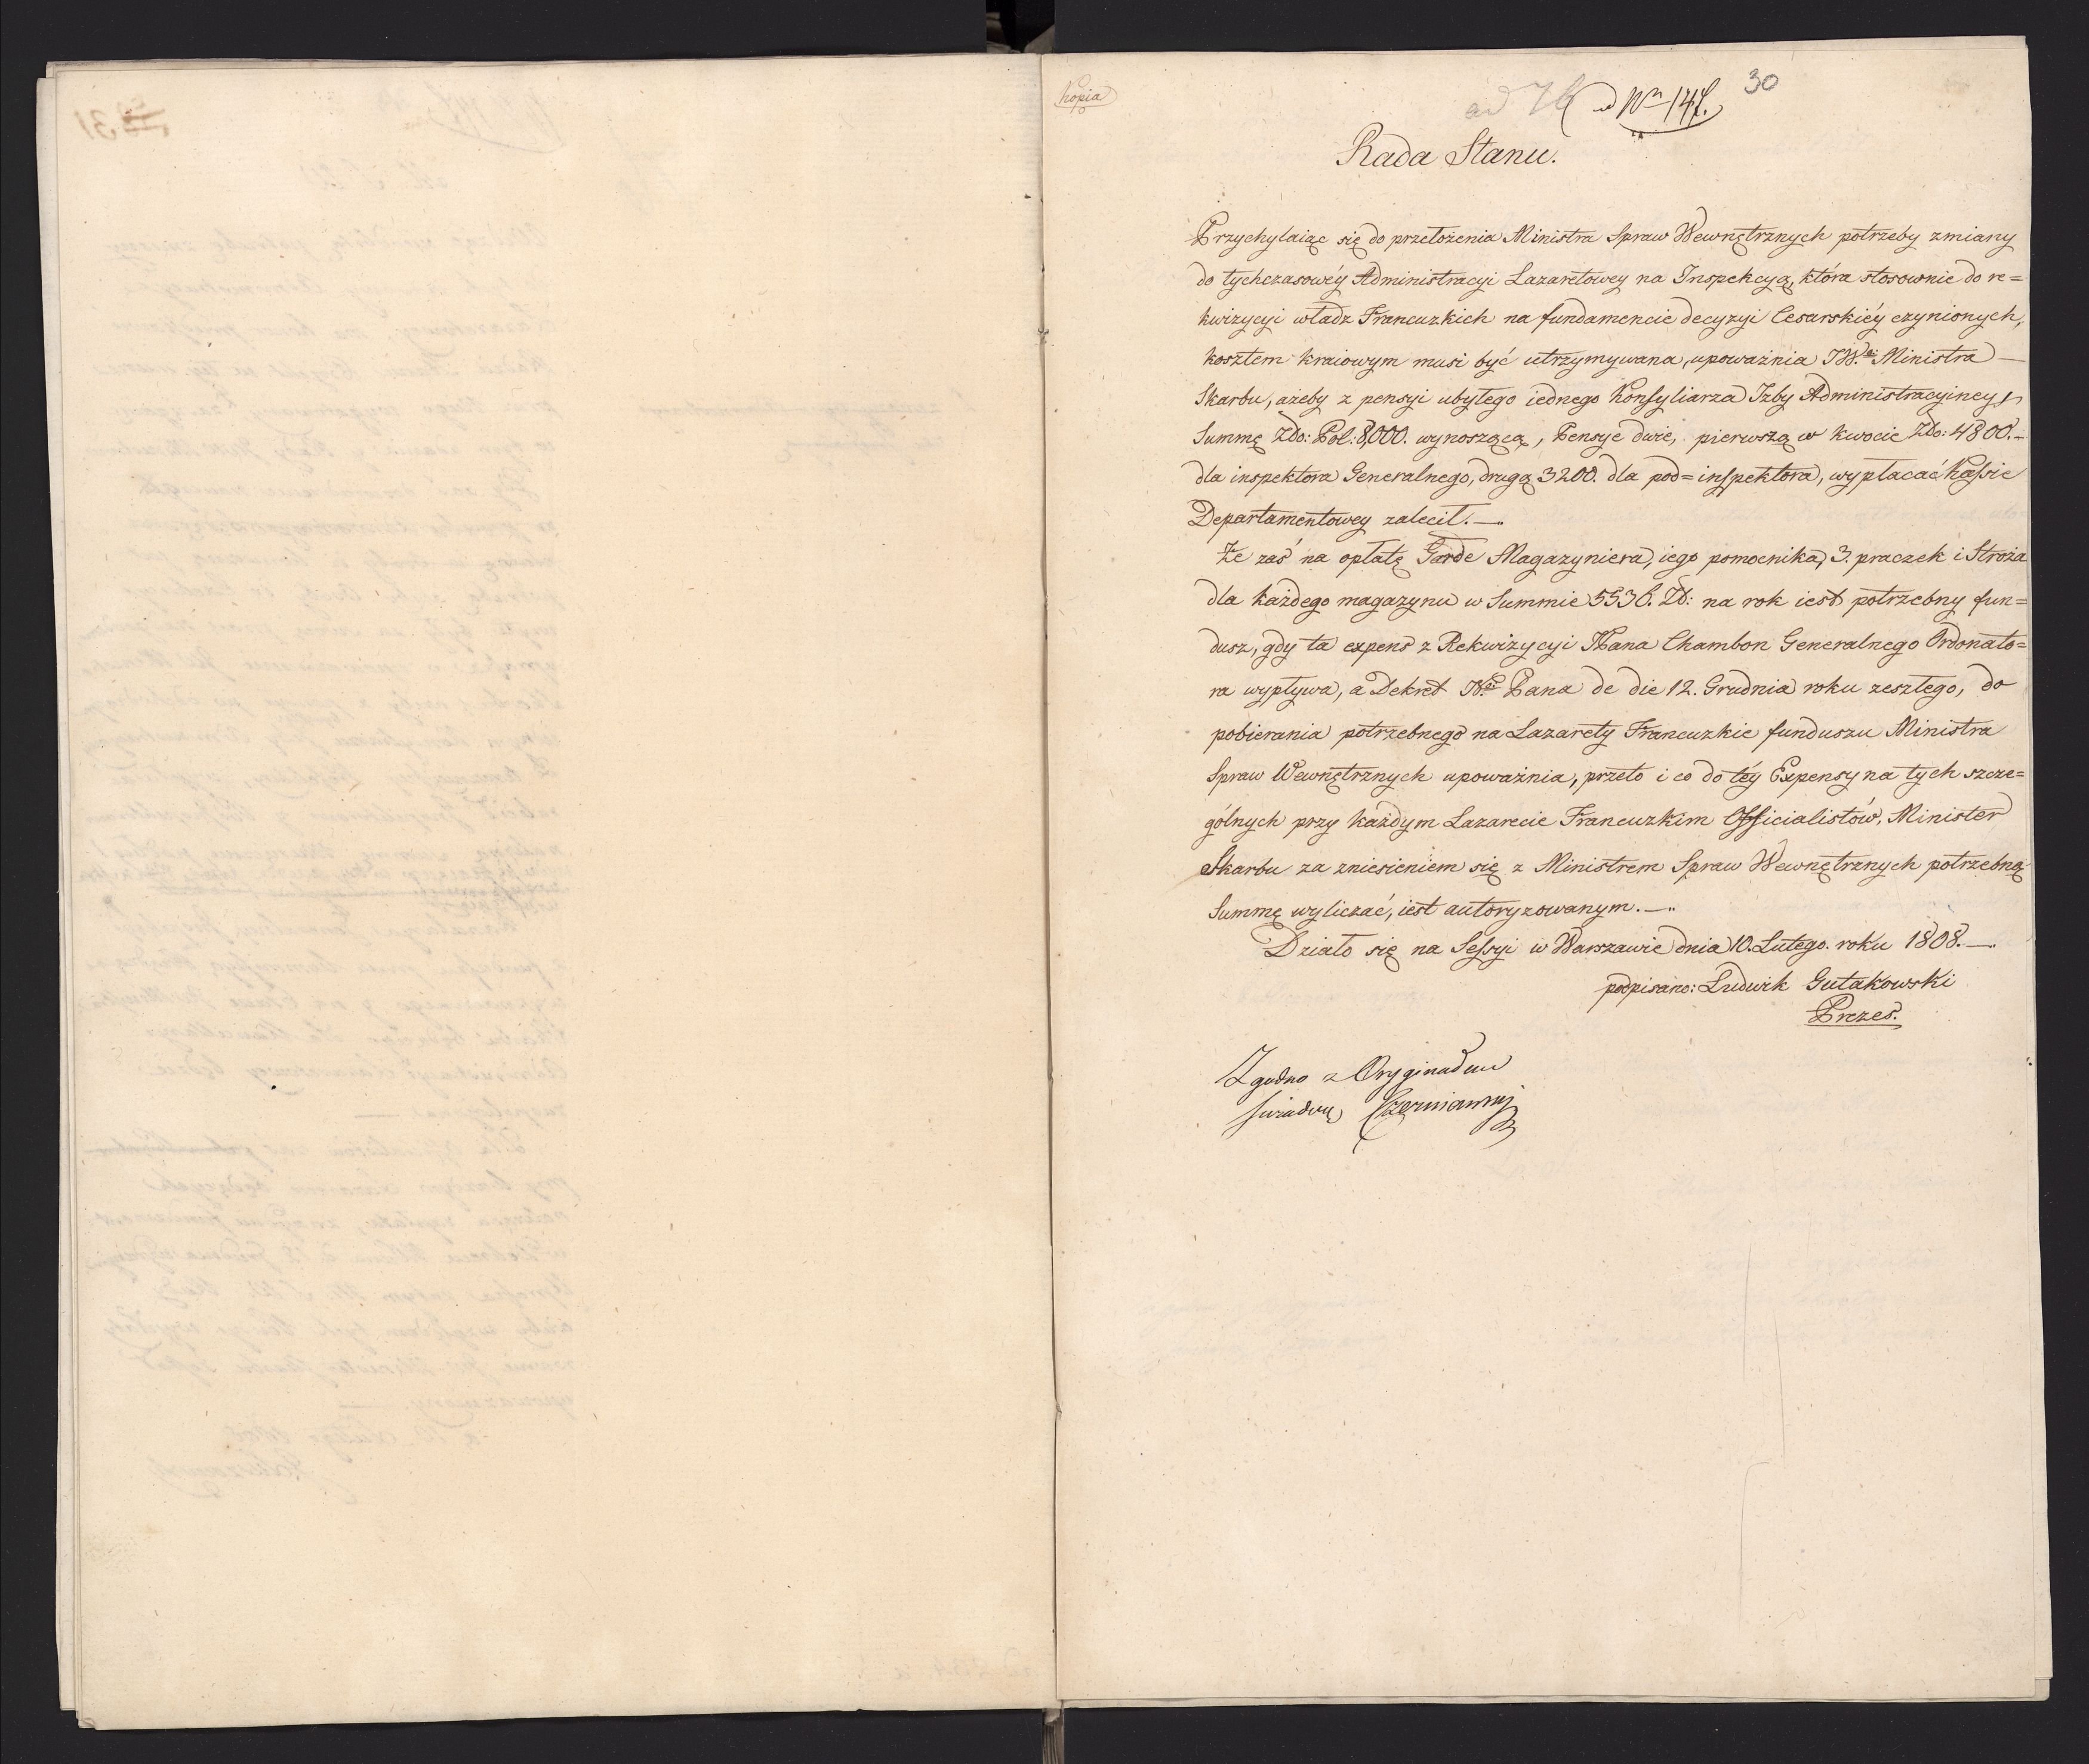 Kopia
30
ad 76 ad Nm 147.
Rada Stanu.
Przychylaiąc się do przełożenia Ministra Spraw Wewnętrznych potrzeby zmiany
do tychczasowéy Administracyi Lazaretowey na Inspekcyą, która stosownie do re=
kwizycyi władz Francuzkich na fundamencie decyzyi Cesarskiéy czynionych,
kosztem kraiowym musi być utrzymywana, upoważnia JW. Ministra
Skarbu, ażeby z pensyi ubyłego iednego Konsyliarza Izby Administracyiney
Summę Złо: Pol: 8,000. wynoszącą, Pensye dwie, pierwszą w kwocie Zło: 4800.–
dla inspektora Generalnego, drugą 3200. dla pod=inspektora, wypłacać Kassie
Departamentowey zalecił.—.
Że zaś na opłatę Garde Magazyniera, iego pomocnika, 3. praczek i Stroża
dla każdego magazynu w Summie 5536. Zł: na rok iest potrzebny fun=
dusz, gdy ta expens z Rekwizycyi JPana Chambon Generalnego Ordonato=
ra wypływa, a Dekret N. Pana de die 12. Grudnia roku zeszłego, do
pobierania potrzebnego na Lazarety Francuzkie funduszu Ministra
Spraw Wewnętrznych upoważnia, przeto i co do téy Expensy na tych szcze=
gólnych przy każdym Lazarecie Francuzkim Officialistów, Minister
Skarbu za zniesieniem się z Ministrem Spraw Wewnętrznych potrzebną
Summę wyliczać, iest autoryzowanym.—.
Działo się na Sessyi w Warszawie dnia 10. Lutego. roku 1808.—.
podpisano: Ludwik Gutakowski
Prezes.
Zgodno z Oryginałem
świadczę